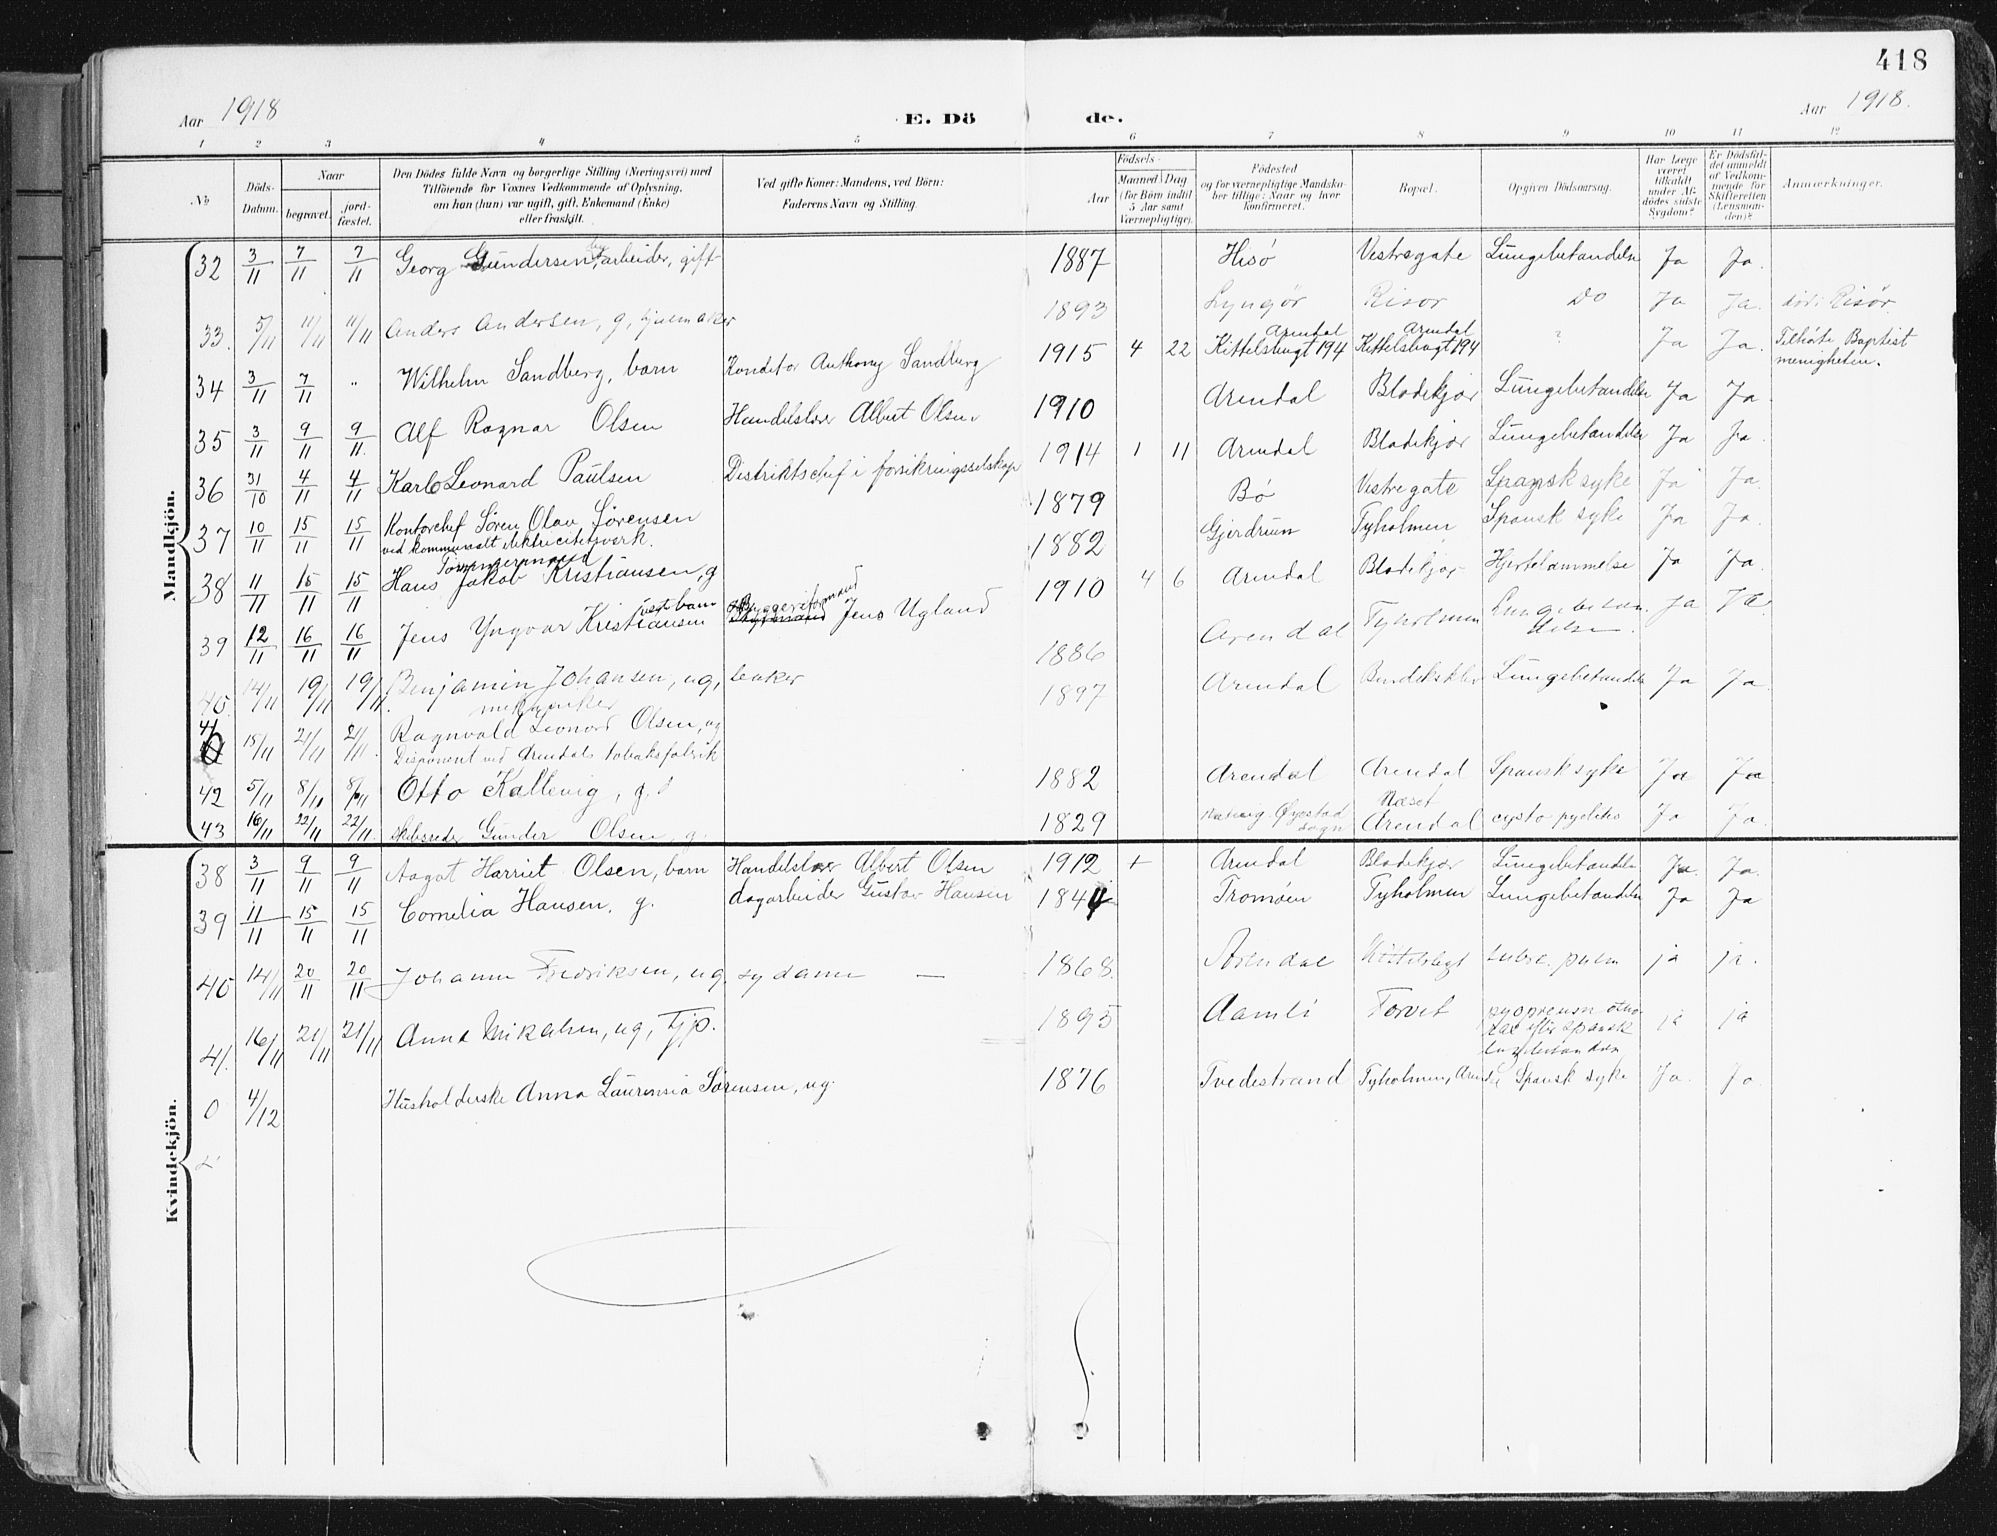 418
Aar 1918
E. Dö de.
Aar 1918.
1 2 3 4 5 6 7 8 9 10 11 12
No
Döds-Datum.
Naar
begravet.
jord-fæstet.
Den Dödes fulde Navn og borgerlige Stilling (Næringsvei) med
Tilföiende for Voxnes Vedkommende af Oplysning,
om han (hun) var ugift, gift, Enkemand (Enke)
eller fraskilt.
Ved gifte Koner: Mandens, ved Börn:
Faderens Navn og Stilling.
Födsels-
Aar
Maaned Dag
(for Börn indtil
5 Aar samt
Værnepligtige).
Födested
og for værnepligtige Mandska-
ber tillige: Naar og hvor
konfirmeret.
Bopæl.
Opgiven Dödsaarsag.
Har Læge
været
tilkaldt
under Af-
dödes sidste
Sygdom?
Er Dödsfal-
det anmeldt
af Vedkom-
mende for
Skifteretten
(Lensman-
den)?
Anmærkninger.
Mandkjön.
32 3/11 7/11 7/11 Georg Gundersen, arbeider, gift 1887 Hisö Vestregate Lungebetændelse Ja Ja.
33. 5/11 11/11 11/11 Anders Andersen, g, 1893 Lyngör Risör Do Ja Ja. död i Risör.
34 3/11 7/11 " Wilhelm Sandberg, barn Konditor Anthony Sandberg 1915 4 22 Arendal Kittelsbugt 194 Arendal Kittelsbugt 194 ? Ja Ja. Tilhöte Baptist
menigheten.
35 3/11 9/11 9/11 Alf Ragnar Olsen Handelslærer Albert Olsen 1910 Arendal Blødekjær Lungebetændelse Ja Ja.
36 31/10 4/11 4/11 Karl Leonard Paulsen Distriktschef i forsikringsselskap 1914 1 11 Arendal Blødekjær Lungebetændelse Ja Ja.
37 10/11 15/11 15/11 Kontorchef Sören Olav Sörensen
ved kommunalt elektricitetsverk. 1879 Bö Vestregate Spansk syke Ja Ja.
38 11/11 15/11 15/11 Hans Jakob Kristiansen, g 1882 Gjerdrum Tyholmen Spansk syke Ja Ja.
39 12/11 16/11 16/11 Jens Yngvar Kristiansen barn Jens Ugland 1910 4 6 Arendal Blødekjær Hjertelammelse Ja Ja.
40. 14/11 19/11 19/11 Benjamin Johansen, ug, 1886 Arendal Tyholmen Lungebetæn
delse. Ja Ja.
41 15/11 21/11 21/11 Ragnvald Leonard Olsen, ug
Disponent ved Arendals tobaksfabrik 1897 Arendal Lungebetændelse Ja Ja.
42 5/11 8/11 8/11 Otto Kallevig, g. 1882 Arendal Arendal Spansk syke Ja Ja
43 16/11 22/11 22/11. Skibsreder Gunder Olsen, g. 1829 Öyestad
sogn Næset
Arendal cysto pyelitis Ja Ja.
Kvindekjön.
38 3/11 9/11 9/11 Aagot Harriet Olsen, barn Handelslærer Albert Olsen 1912 + Arendal Blødekjær Lungebetændelse Ja. Ja.
39 11/11 15/11 15/11 Cornelia Hansen, g. dagarbeider Gustav Hansen 1844 Tromöen Tyholmen Lungebetændelse Ja Ja
40 14/11 20/11 20/11 Johanne Fredriksen, ug, sydame — 1868. Arendal Kittelsbugt tuberc. pulm ja ja.
41. 16/11 21/11 21/11 Anna Mikalsen, ug, Tjp. 1895 Aamli Torvet efter spansk ja ja
0 4/12 Husholderske Anna Laurensia Sörensen, ug. 1876 Tvedestrand Tyholmen, Arendal Spansk syke Ja. Ja.